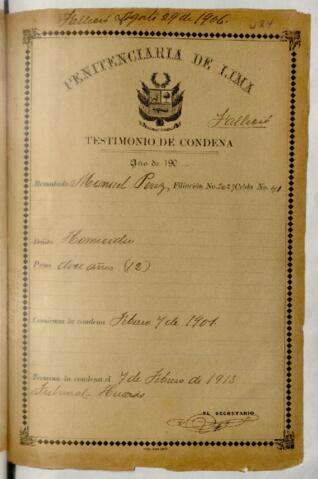 Falleció Agosto 29 de 1906.
PENITENCIARIA DE LIMA
Falleció
TESTIMONIO DE CONDENA
Año de 190
Rematado Manuel Perez, Filiación No. Celda No. 41
Delito Homicidio
Pena doce años (12)
Comienza la condena Febrero 7 de 1901.
Termina la condena el 7 de Febrero de 1913
Tribunal
EL SECRETARIO